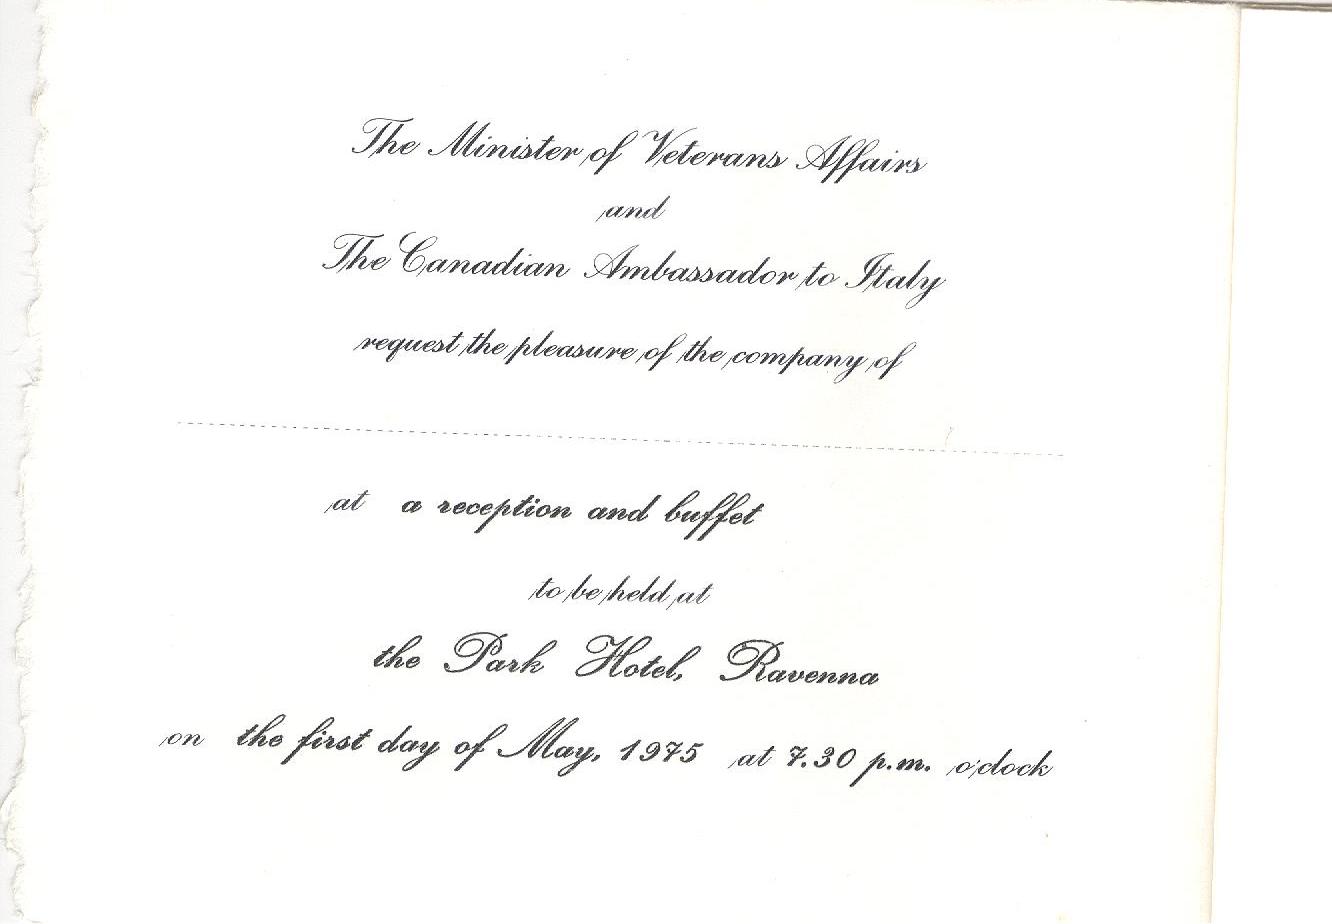 The Minister of Veterans Affairs
and
The Canadian Ambassador to Italy
request the pleasure of the company of
at a reception and buffet
to be held at
the Park Hotel, Ravenna
on the first day of May, 1975 at 7.30 p.m. o'clock